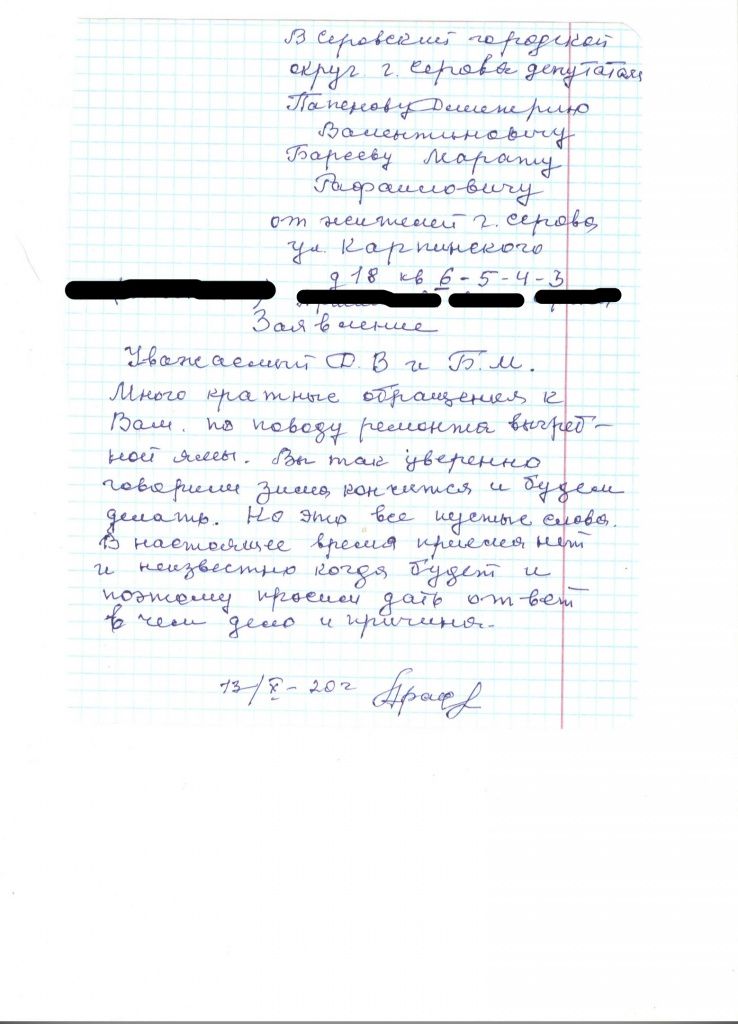 В Серовский городской
округ г. Серова депутатам
Папенову Дмитерию
Валентиновичу
Барееву Марату
Рафаиловичу
от жителей г. Серова
ул. Карпинского
д 18 кв 6-5-4-3
Заявление
Уважаемый П.Д.В и Б.М.
Много кратные обращения к
Вам. по поводу ремонта выгреб-
ной ямы. Вы так уверенно
говорили зима кончится и будем
делать. Но это все пустые слова.
В настоящее время приема нет
и неизвестно когда будет и
поэтому просим дать ответ
в чем дело и причина.
13/X-20г